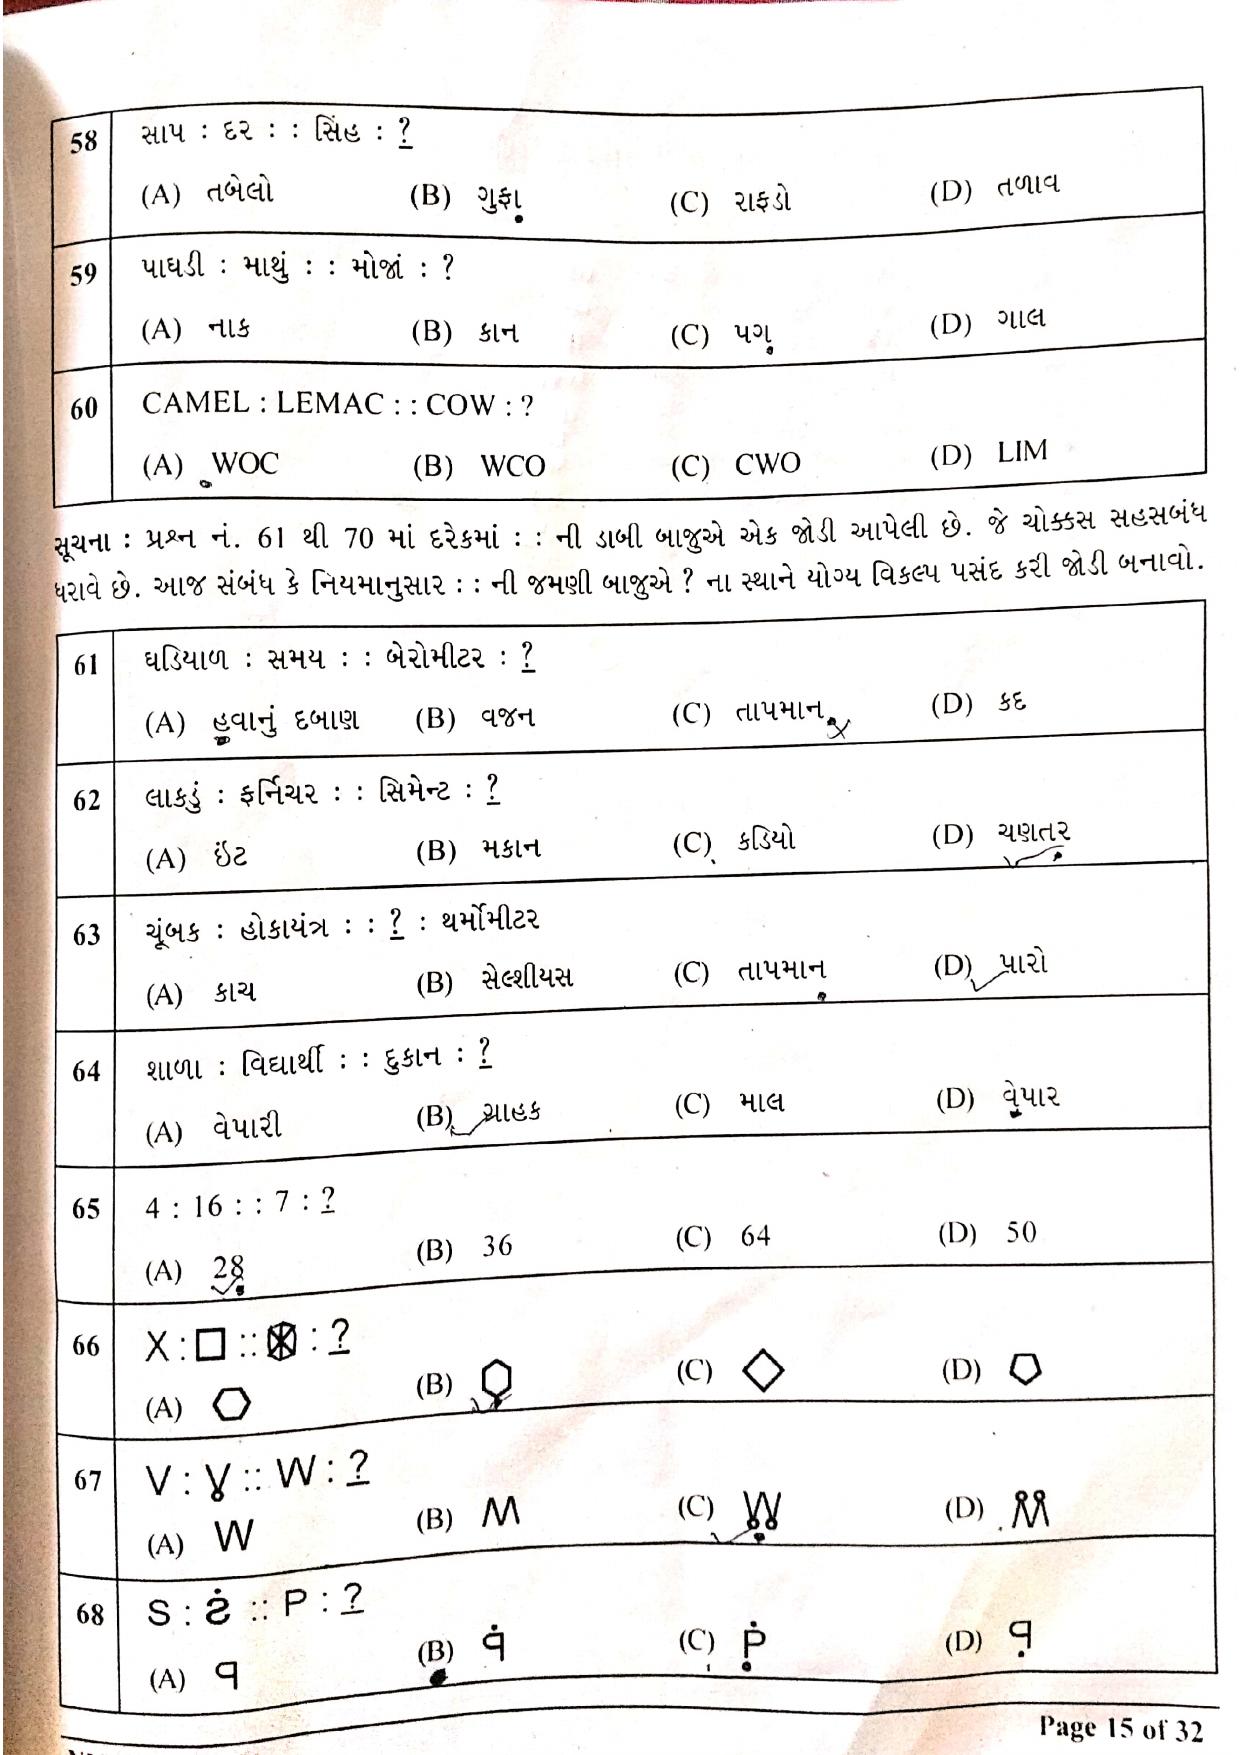 58 સાપ : દર : : સિંહ : ?
(A) તબેલો (B) ગુફા (C) રાફડો (D) તળાવ
59 પાઘડી : માથું : : મોજાં : ?
(A) નાક (B) કાન (C) પગ (D) ગાલ
60 CAMEL : LEMAC : : COW : ?
(A) WOC (B) WCO (C) CWO (D) LIM
સૂચના : પ્રશ્ન નં. 61 થી 70 માં દરેકમાં : : ની ડાબી બાજુએ એક જોડી આપેલી છે. જે ચોક્કસ સહસબંધ
ધરાવે છે. આજ સંબંધ કે નિયમાનુસાર : : ની જમણી બાજુએ ? ના સ્થાને યોગ્ય વિકલ્પ પસંદ કરી જોડી બનાવો.
61 ઘડિયાળ : સમય : : બેરોમીટર : ?
(A) હવાનું દબાણ (B) વજન (C) તાપમાન (D) કદ
62 લાકડું : ફર્નિચર : : સિમેન્ટ : ?
(A) ઇંટ (B) મકાન (C) કડિયો (D) ચણતર
63 ચૂંબક : હોકાયંત્ર : : ? : થર્મોમીટર
(A) કાચ (B) સેલ્શીયસ (C) તાપમાન (D) પારો
64 શાળા : વિદ્યાર્થી : : દુકાન : ?
(A) વેપારી (B) ગ્રાહક (C) માલ (D) વેપાર
65 4 : 16 : : 7 : ?
(A) 28 (B) 36 (C) 64 (D) 50
66 X : □ :: : ?
(A) (B) (C) (D)
67 V : :: W : ?
(A) W (B) M (C) (D)
68 S : :: P : ?
(A) (B) (C) Ṗ (D)
Page 15 of 32